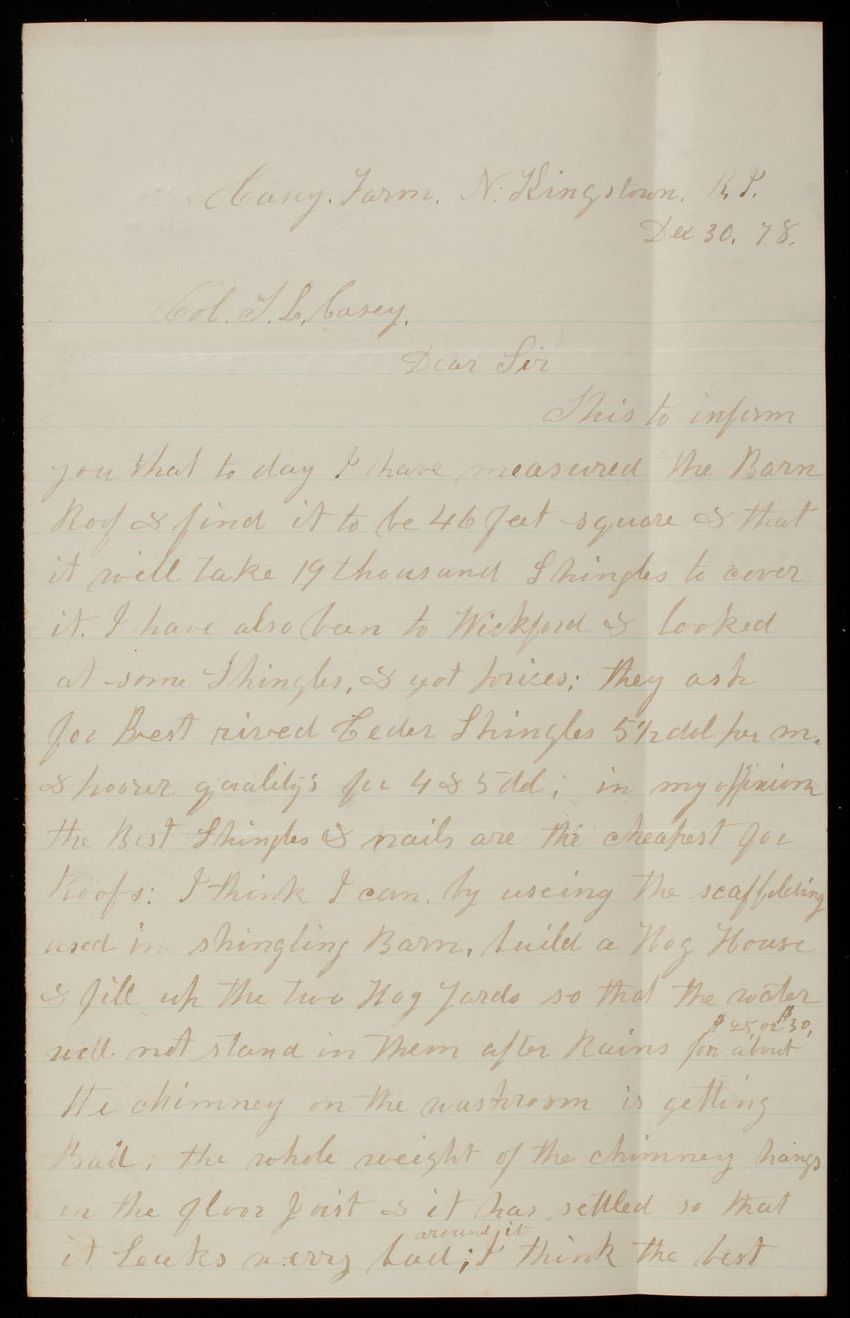 Casey. Farm. N. Kingstown. R. I.
Dec 30. 78.
Col. T. L. Casey.
Dear Sir
This to inform
you that to day I have measured the Barn
Roof & find it to be 46 feet square & that
it will take 19 thousand Shingles to cover
it. I have also been to Wickford & looked
at some Shingles, & got prices; they ask
for Best rived Ceder Shingles 5 1/2 dol per m.
& poorer qualitys for 4 & 5 dol; in my opinion
the Best Shingles & nails are the cheapest for
Roofs: I think I can, by useing the scaffolding
used in shingling Barn, build a Hog House
& fill up the two Hog Yards so that the water
$25, or $30,
will not stand in them after Rains for about
the chimney on the washroom is getting
Bad; the whole weight of the chimney hangs
on the floor Joist & it has settled so that
around it
it leaks verry bad; I think the best